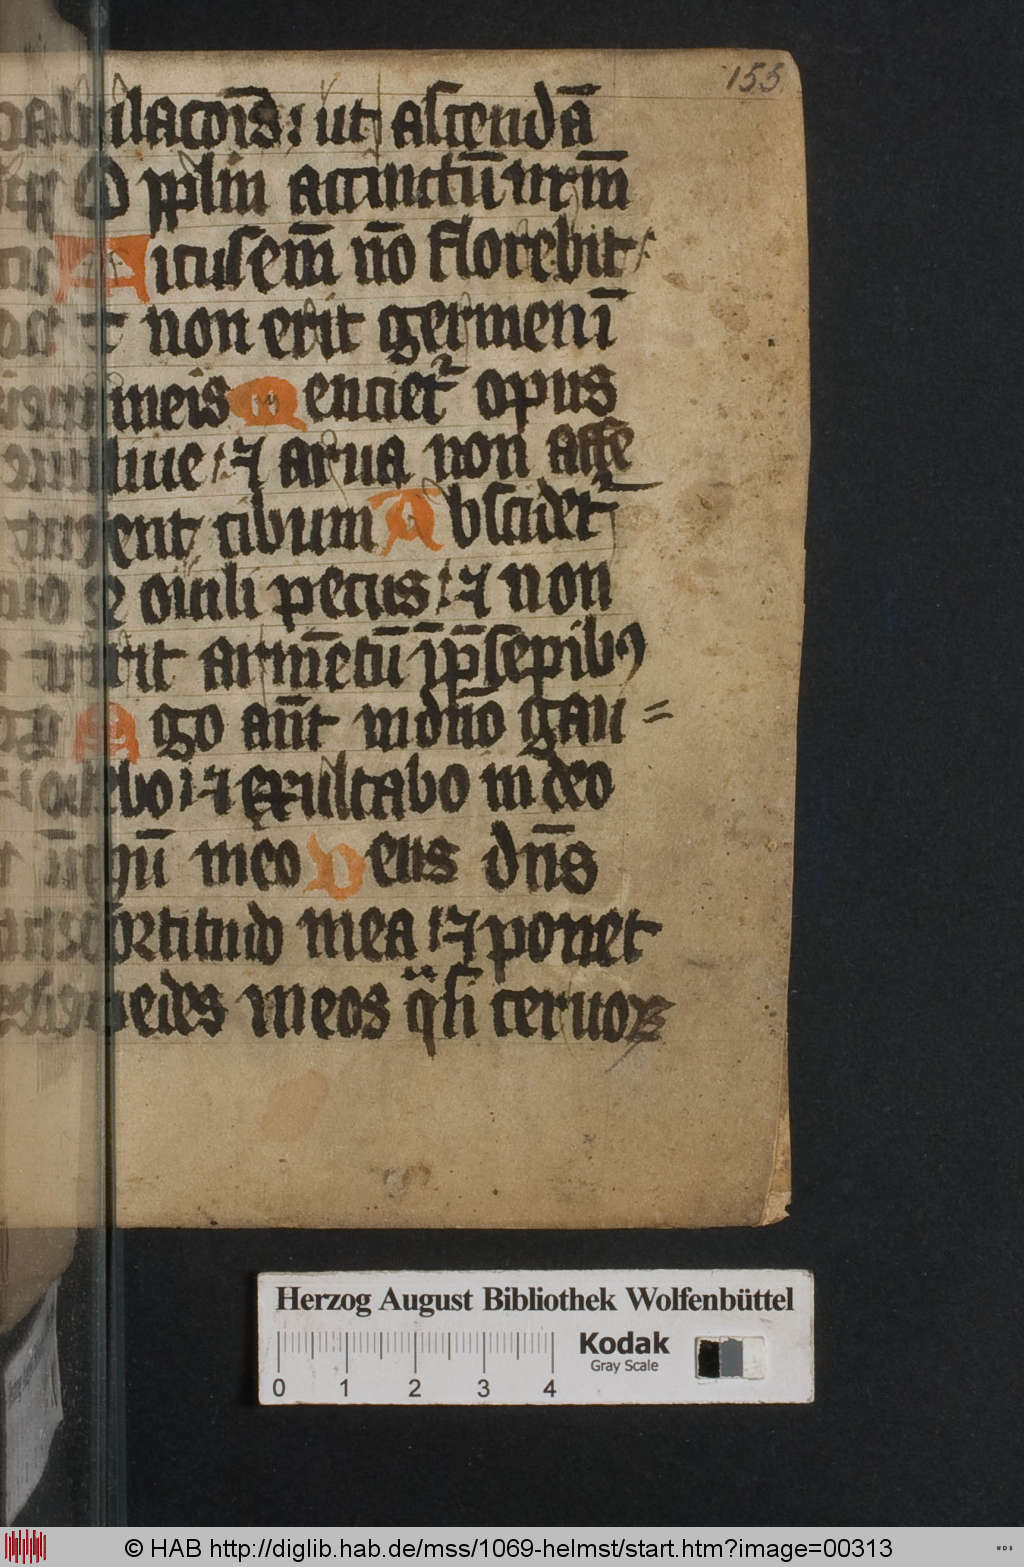 155
bulacōis: ut ascendā
ad pplm accinctū nrm̄
Ficus em̄ nō florebit:
et non erit germen ī
vineis Mentiet᷑ opus
oliue: ⁊ arua non affe
rent cibum Abscidet᷑
de ouili pecus: ⁊ non
erit armētū ī p̄sepibꝰ
Ego aūt in dnō gau=
debo: ⁊ exultabo in deo
ih̄u meo Deus dn̄s
fortitudo mea: ⁊ ponet
pedes meos q̈si ceruoꝝ
Herzog August Bibliothek Wolfenbüttel
Kodak
Gray Scale
0 1 2 3 4
© HAB http://diglib.hab.de/mss/1069-helmst/start.htm?image=00313